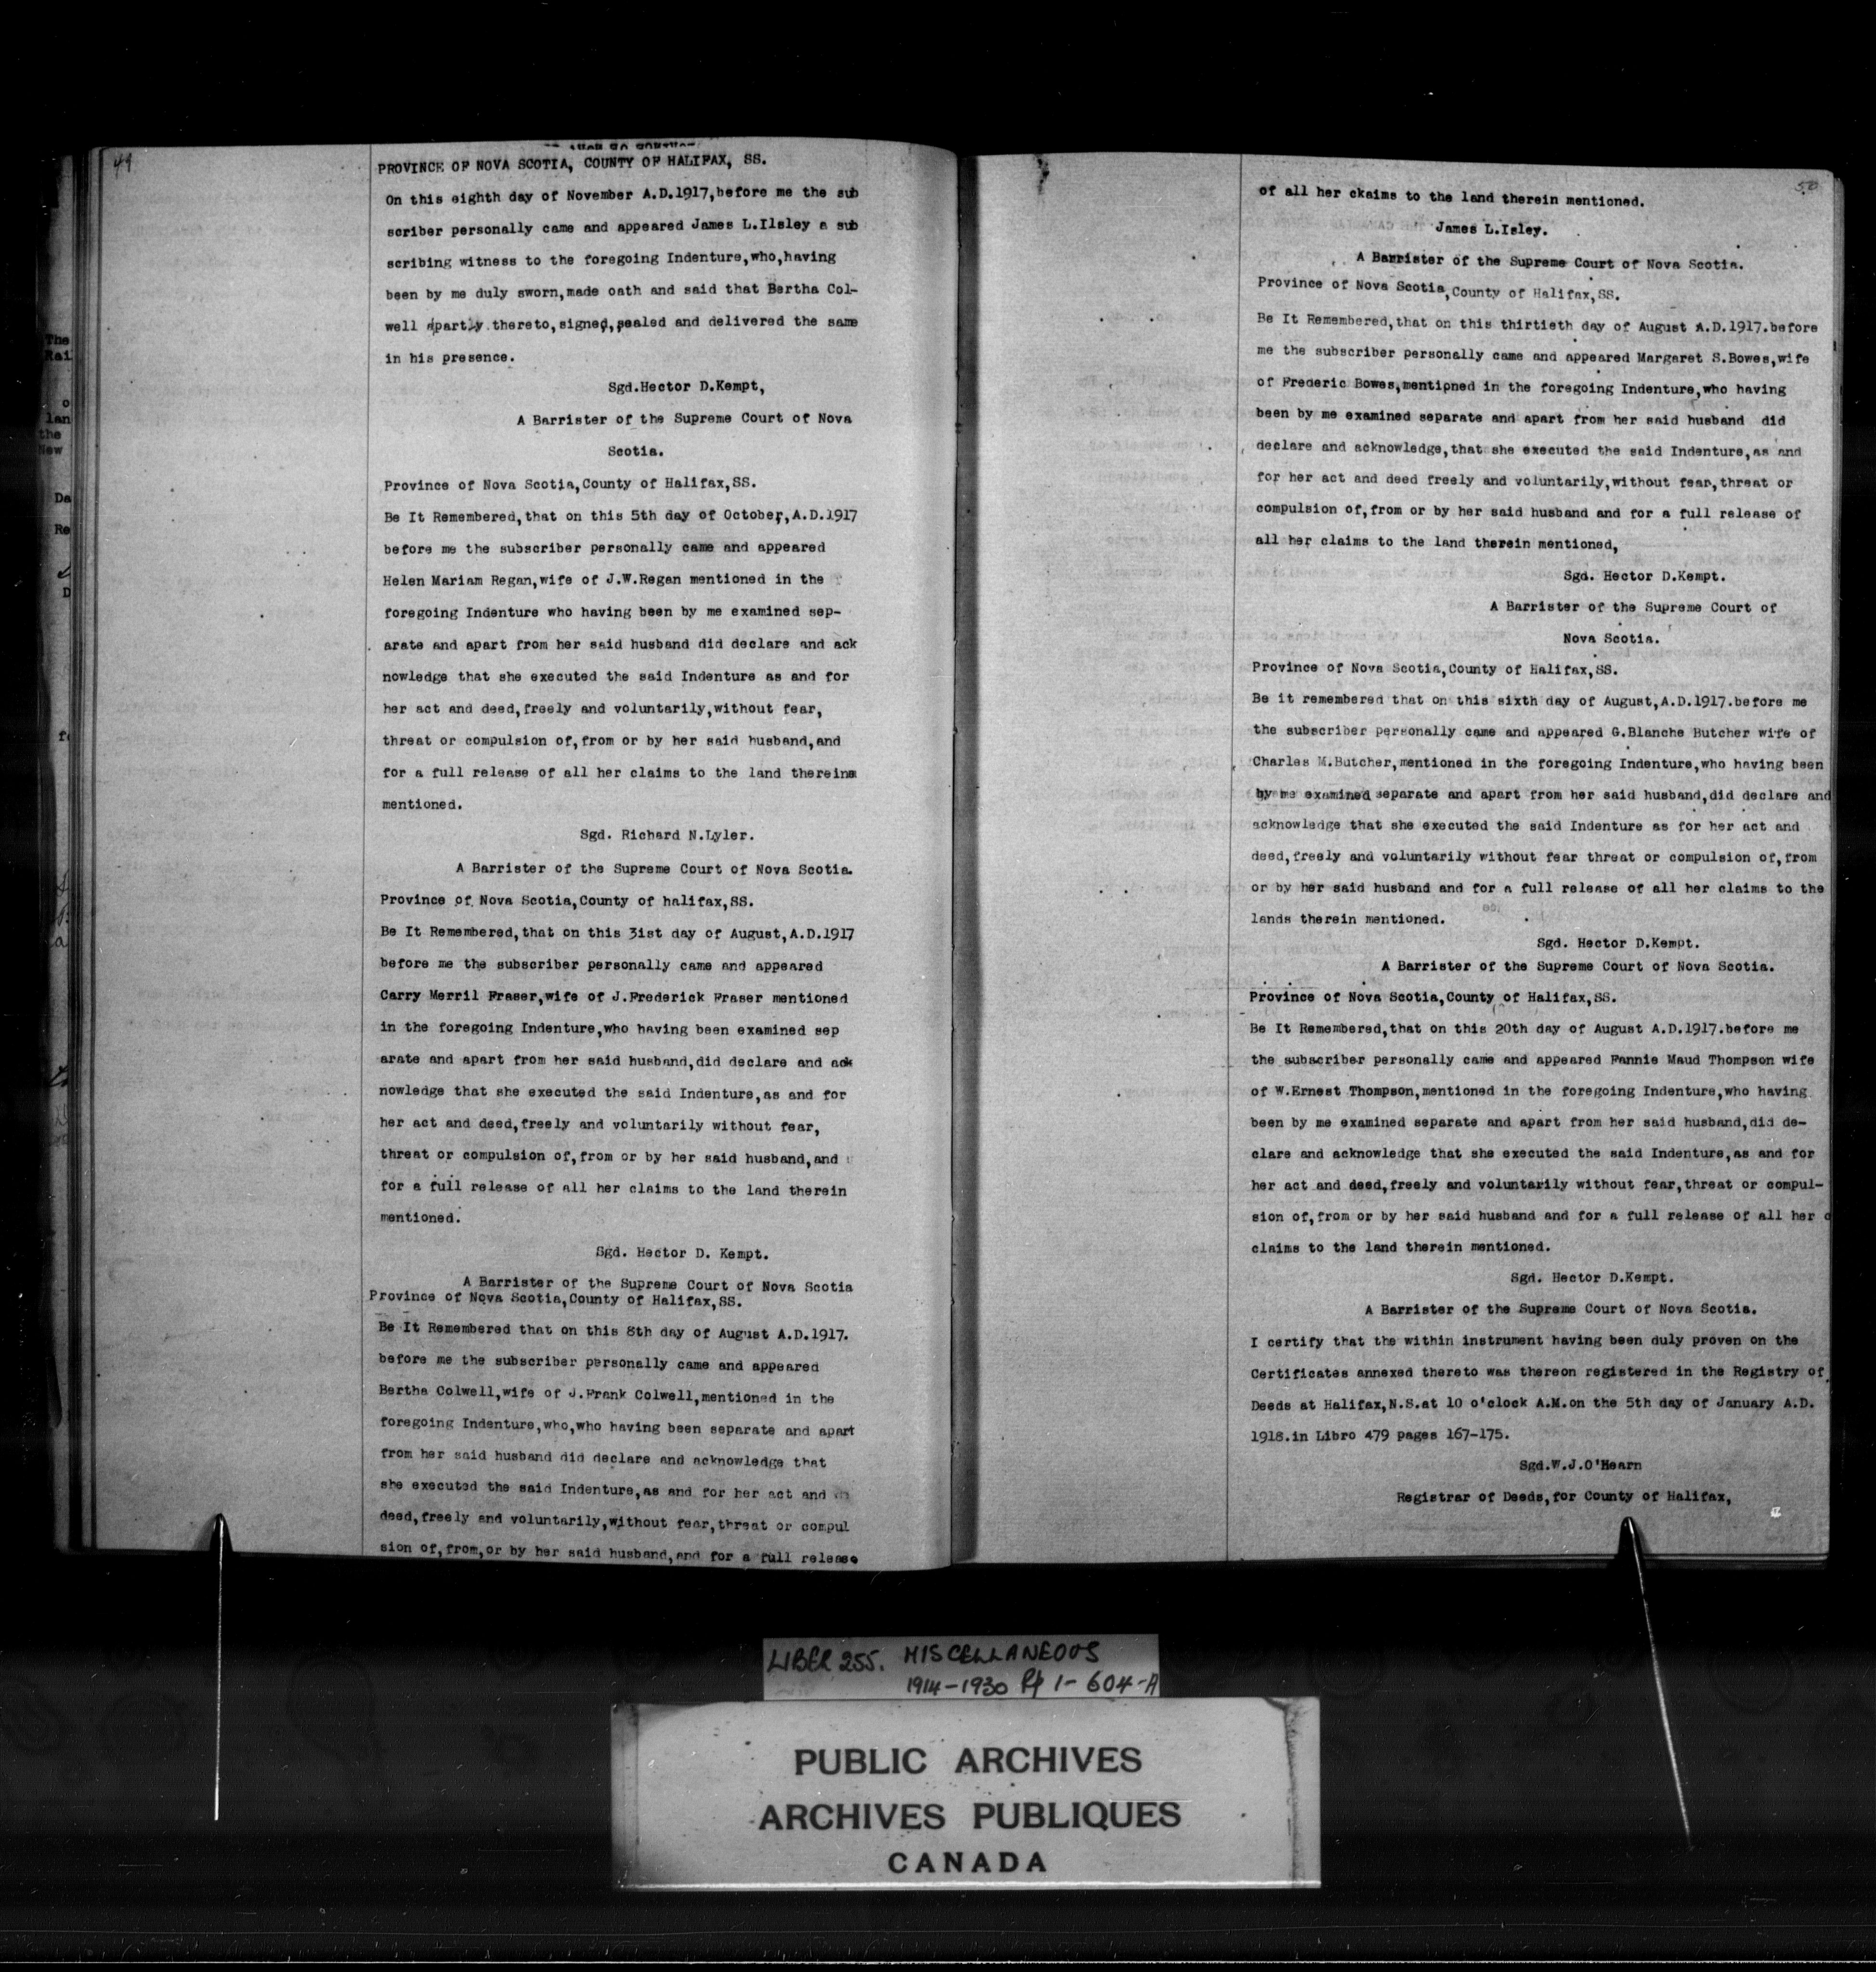 49
PROVINCE OF NOVA SCOTIA, COUNTY OF HALIFAX, SS.
On this eighth day of November A.D.1917,before me the sub
scriber personally came and appeared James L.Ilsley a sub
scribing witness to the foregoing Indenture,who,having
been by me duly sworn,made oath and said that Bertha Col-
well apartly thereto,signed,sealed and delivered the same
in his presence.
Sgd.Hector D.Kempt,
A Barrister of the Supreme Court of Nova
Scotia.
Province of Nova Scotia,County of Halifax,SS.
Be It Remembered,that on this 5th day of October,A.D.1917
before me the subscriber personally came and appeared
Helen Mariam Regan,wife of J.W.Regan mentioned in the
foregoing Indenture who having been by me examined sep-
arate and apart from her said husband did declare and ack
nowledge that she executed the said Indenture as and for
her act and deed,freely and voluntarily,without fear,
threat or compulsion of,from or by her said husband,and
for a full release of all her claims to the land therein
mentioned.
Sgd. Richard N.Lyler.
A Barrister of the Supreme Court of Nova Scotia.
Province of Nova Scotia,County of halifax,SS.
Be It Remembered,that on this 3ist day of August,A.D.1917
before me the subscriber personally came and appeared
Carry Merril Fraser,wife of J.Frederick Fraser mentioned
in the foregoing Indenture,who having been examined sep
arate and apart from her said husband,did declare and ack
nowledge that she executed the said Indenture,as and for
her act and deed,freely and voluntarily without fear,
threat or compulsion of,from or by her said husband,and
for a full release of all her claims to the land therein
mentioned.
Sgd. Hector D. Kempt.
A Barrister of the Supreme Court of Nova Scotia
Province of Nova Scotia,County of Halifax,SS.
Be It Remembered that on this 8th day of August A.D.1917.
before me the subscriber personally came and appeared
Bertha Colwell,wife of J.Frank Colwell,mentioned in the
foregoing Indenture,who,who having been separate and apart
from her said husband did declare and acknowledge that
she executed the said Indenture,as and for her act and
deed,freely and voluntarily,without fear,threat or compul
sion of,from,or by her said husband,and for a full release
50
of all her ckaims to the land therein mentioned.
James L.Isley.
A Barrister of the Supreme Court of Nova Scotia.
Province of Nova Scotia,County of Halifax,SS.
Be It Remembered,that on this thirtieth day of August A.D.1917.before
me the subscriber personally came and appeared Margaret S.Bowes,wife
of Frederic Bowes,mentioned in the foregoing Indenture,who having
been by me examined separate and apart from her said husband did
declare and acknowledge,that she executed the said Indenture,as and
for her act and deed freely and voluntarily,without fear,threat or
compulsion of,from or by her said husband and for a full release of
all her claims to the land therein mentioned,
Sgd. Hector D.Kempt.
A Barrister of the Supreme Court of
Nova Scotia.
Province of Nova Scotia,County of Halifax,SS.
Be it remembered that on this sixth day of August,A.D.1917.before me
the subscriber personally came and appeared G.Blanche Butcher wife of
Charles M.Butcher,mentioned in the foregoing Indenture,who having been
by me examined separate and apart from her said husband,did declare and
acknowledge that she executed the said Indenture as for her act and
deed,freely and voluntarily without fear threat or compulsion of,from
or by her said husband and for a full release of all her claims to the
lands therein mentioned.
Sgd. Hector D.Kempt.
A Barrister of the Supreme Court of Nova Scotia.
Province of Nova Scotia,County of Halifax,SS.
Be It Remembered,that on this 20th day of August A.D.1917.before me
the subscriber personally came and appeared Fannie Maud Thompson wife
of W.Ernest Thompson,mentioned in the foregoing Indenture,who having
been by me examined separate and apart from her said husband,did de-
clare and acknowledge that she executed the said Indenture,as and for
her act and deed,freely and voluntarily without fear,threat or compul-
sion of,from or by her said husband and for a full release of all her c
claims to the land therein mentioned.
Sgd. Hector D.Kempt.
A Barrister of the Supreme Court of Nova Scotia.
I certify that the within instrument having been duly proven on the
Certificates annexed thereto was thereon registered in the Registry of
Deeds at Halifax,N.S.at 10 o'clock A.M.on the 5th day of January A.D.
1918.in Libro 479 pages 167-175.
Sgd.W.J.O'Hearn
Registrar of Deeds,for County of Halifax,
LIBER 255. MISCELLANEOUS
1914-1930 Pp 1-604-A
PUBLIC ARCHIVES
ARCHIVES PUBLIQUES
CANADA